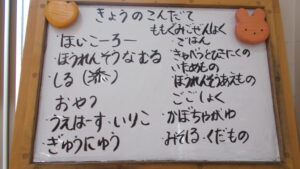 きょうのこんだて
ほいこーろー
ほうれんそうなむる
しる(添)
おやつ
うえはーす・いりこ
ぎゅうにゅう
ももぐみにぜんしょく
ごはん
きゃべつとひきにくの
いためもの
ほうれんそうあえもの
ごごしょく
かぼちゃがゆ
みそしる・くだもの